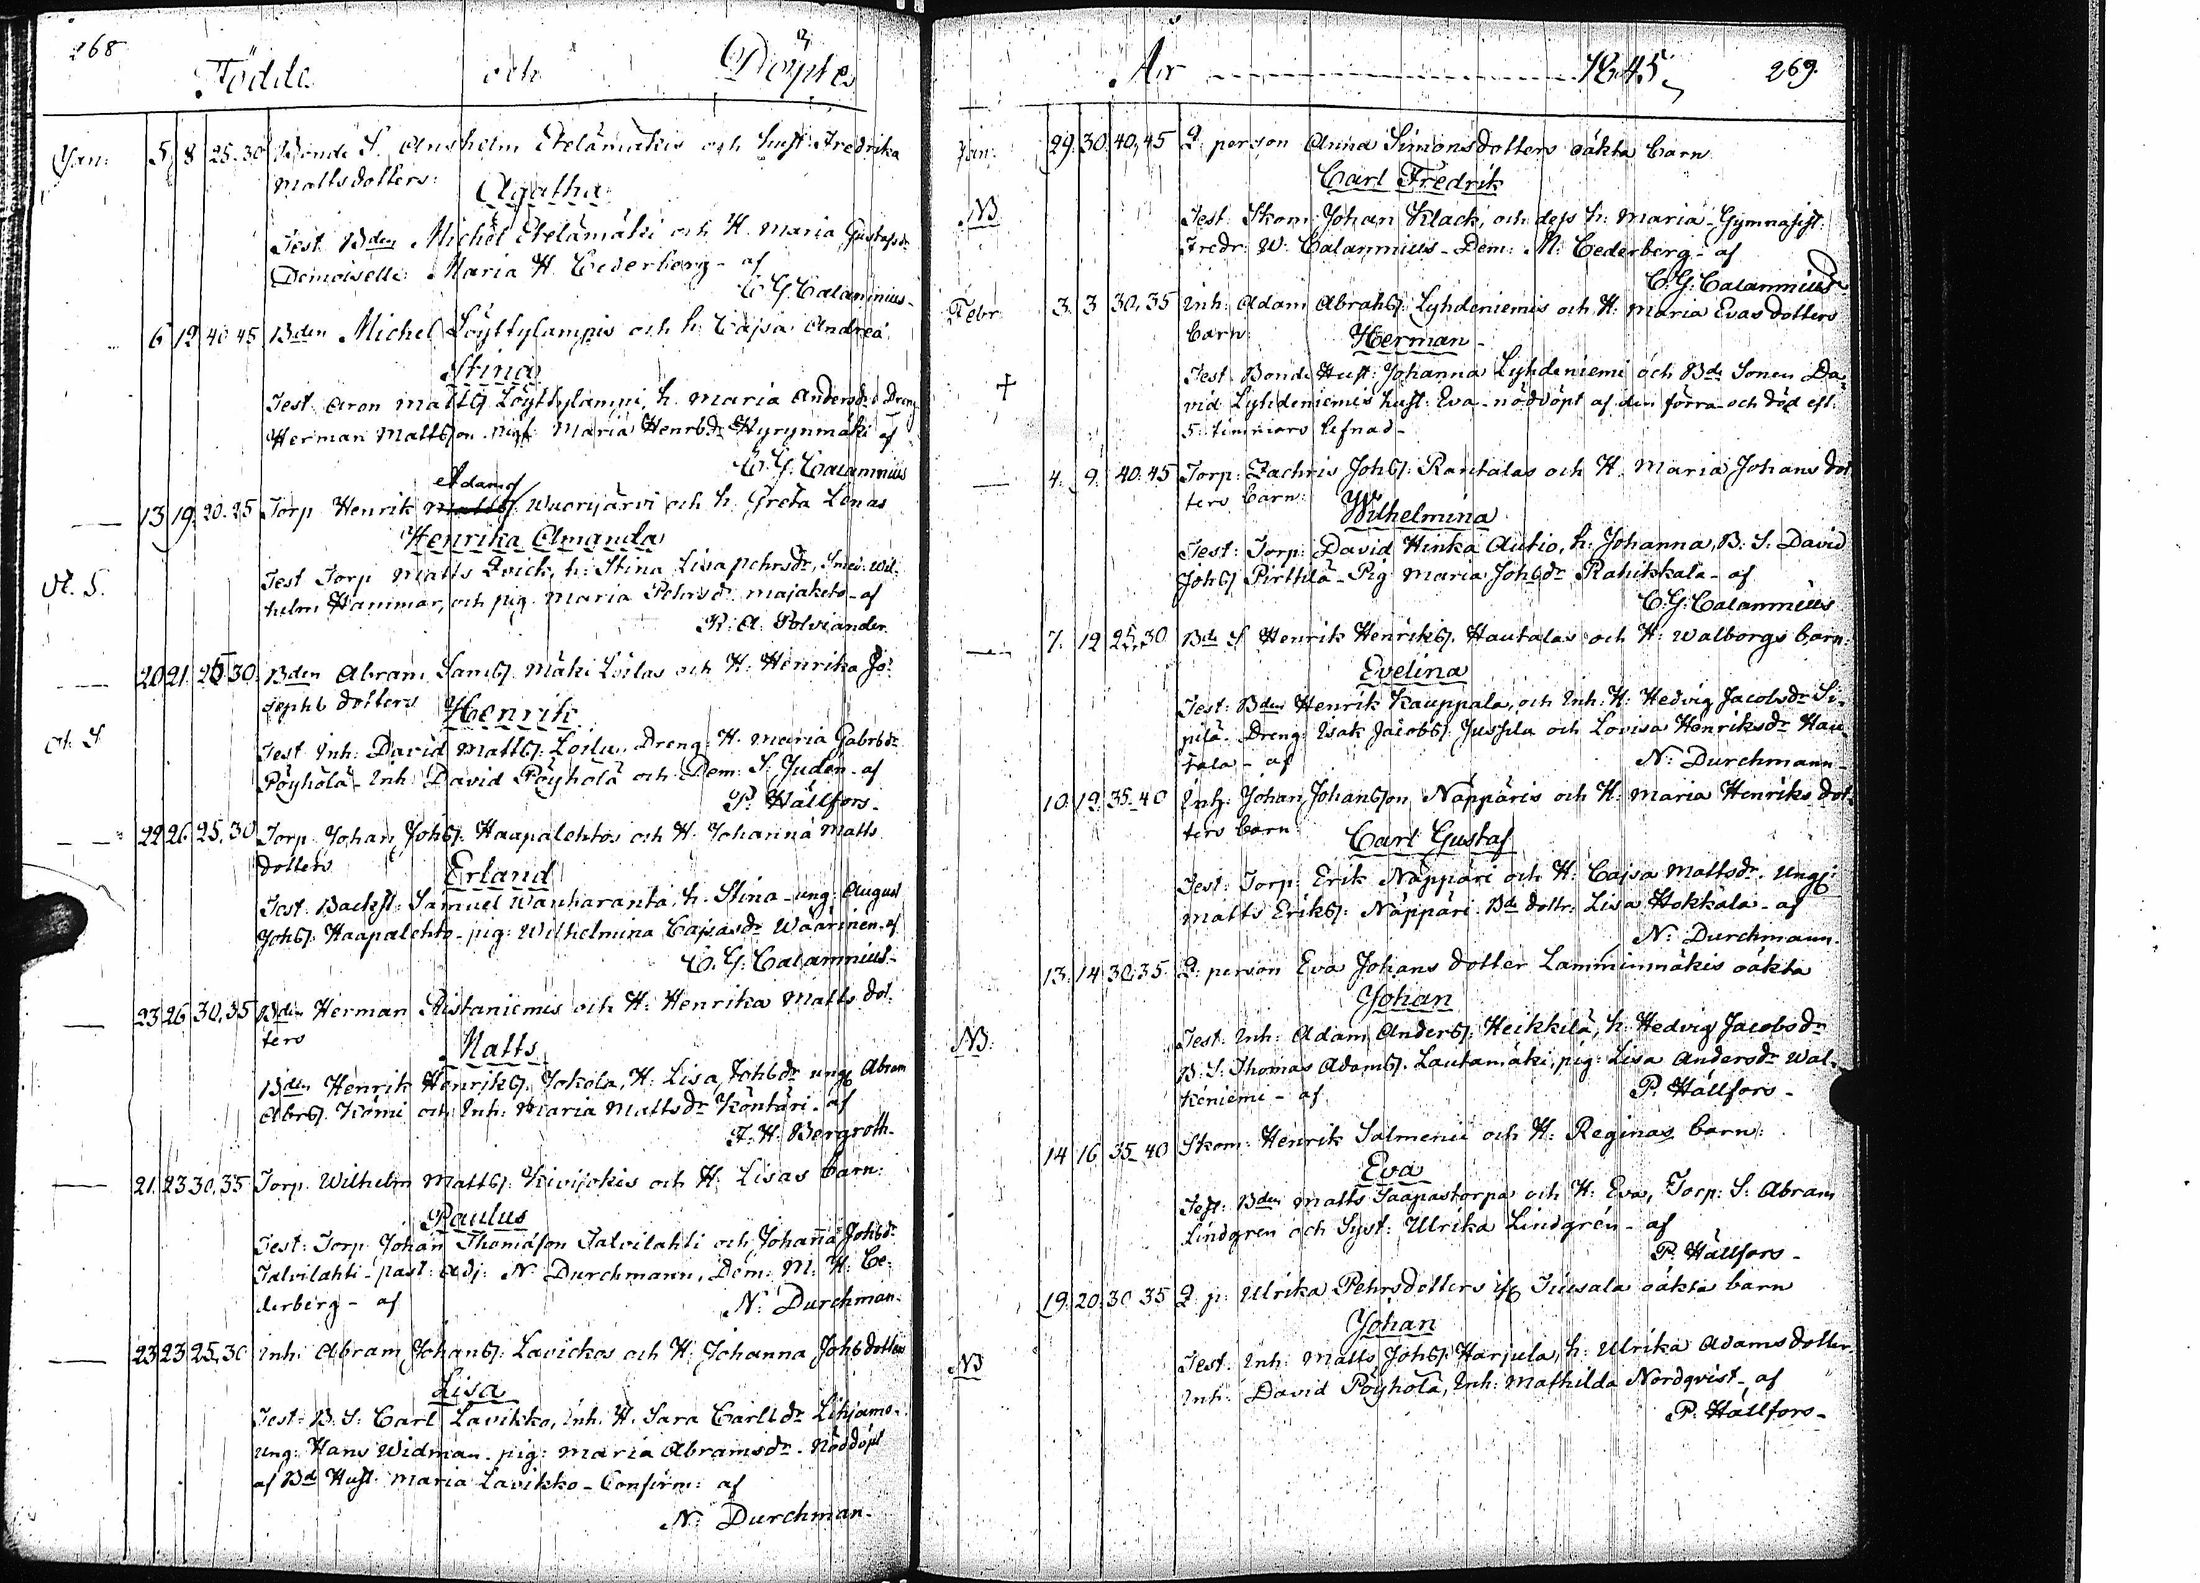 268
Födde och Döpte
Jan: 5 8 25.30 Bonde S. Anshelm Etelämäkis och Hust: Fredrika
Mattsdotters:
Agatha
Test. Bden Michel Etelämäki och H. Maria Gustafsdr
Demoiselle: Maria H. Cederberg - af
C. G. Calamnius -
6 12 40 45 Bden Michel Löyttylampis och h: Cajsa Andreä
Stina
Test. Aron Mattss Löyttylampi, h. Maria Andersdr Dreng
Herman Mattsson pig: Maria Henrsdr Hyrynmäki af
C. G. Calamnius
Adamss
13 19 20.25 Torp Henrik Mattss Wuorijärvi och h. Greta Lenas
Henrika Amanda
Test Torp Matts Qvick, h: Stina Lisa pehrsdr, Smed. Wil-
helm Hammar, och pig. Maria Pehrsdr majakeho - af
R: A: Polviander
20 21 25 30 Bden Abram Samss. Mäki Loilas och H: Henrika Jo-
sephs dotters
Henrik
Test inh: David Mattss: Loilu. Dreng: H. Maria Gabrsdr
Pöyhölä - Inh: David Pöyhölä och Dem: S. Juden - af
P. Hällfors -
22 26 25.30 Torp. Johan Johss: Haapalehtos och H. Johanna Matts
dotters
Erland
Test. Backst: Samuel Wanharanta, h. Stina - ung: August
Johss: Haapalehto - pig: Wilhelmina Cajsasdr Wäärinen - af
C. G. Calamnius -
23 26 30,35 Bden Herman Ristaniemis och H: Henrika Matts dot-
ters
Matts
Bden Henrik Henrikss. Jokela, H: Lisa Johsdr ung Abram
Abrss. Kömi och Inh: Maria Mattsdr Köntäri - af
F. H. Bergroth -
21. 23 30.35 Torp. Wilhelm Mattss: Kivijokis och H: Lisas barn:
Paulus
Test: Torp Johan Thomasson Talvilahti och Johanna Johsdr
Talvilahti - past: Adj: N. Durchmann, Dem: M: H: Ce-
derberg - af
N: Durchman.
23 23 25,30 inh: Abram Johanss: Lavickos och H: Johanna Johsdotters
Lisa
Test: B. S: Carl Lavikko, inh. H. Sara Carlsdr Lihjamo
ung: Hans Widman. pig: Maria Abramsdr - Nöddöpt
af Bd Hust. Maria Lavikko - Confirm: af
N: Durchman -
År 1845. 269.
Jan: 29. 30. 40,45 Q: person Anna Simonsdotters oäkta barn
Carl Fredrik
NB Test. Skom: Johan Klack, och dess h: Maria - Gymnasist:
Fredr: W: Calamnius - Dem: M: Cederberg - af
C. G. Calamnius
Febr 3. 3 30,35 inh: Adam Abrahss: Lyhdeniemis och H: Maria Evas dotters
barn:
Herman -
Test. Bonde Hust: Johanna Lyhdeniemi och Bde Sonen Da-
vid Lyhdeniemis hust: Eva - nöddöpt af den förra och död eft:
5 timmars lefnad -
4. 9. 40.45 Torp: Zachris Johss: Rantalas och H. Maria Johans dot
ters barn:
Wilhelmina
Test: Torp: David Hinka Autio, h: Johanna, B: S. David
Johss Pirttilä - Pig Maria Johsdr Rahikkala - af
C: G: Calamnius
7. 12 25,30 Bde S Henrik Henrikss. Hautalas och H: Walborgs barn:
Evelina
Test: Bden Henrik Kauppala, och Inh: H: Hedvig Jacobsdr Si-
pilä. Dreng Isak Jacobss: Jussila och Lovisa Henriksdr Hau
tala - af
N: Durchmann -
10. 12. 35.40 Inh: Johan Johansson Näppäris och H: Maria Henriks dot-
ters barn
Carl Gustaf
Test: Torp: Erik Näppäri och H: Cajsa Mattsdr. Ungs:
Matts Erikss: Näppäri. Bde dottr: Lisa Hokkala - af
N: Durchmann.
13. 14 30.35. Q: person Eva Johans dotter Lamminmäkis oäkta
Johan
NB: Test. Inh: Adam Anderss: Heikkilä, h: Hedvig Jacobsdr
B: S: Thomas Adamss. Lautamäki, pig: Lisa Andersdr Wal-
keniemi - af
P. Hällfors -
14 16 35.40 Skom: Henrik Salmenii och H: Reginas barn:
Eva
Test: Bden Matts Saapastorpa och H: Eva, Torp: S: Abram
Lindgren och Syst: Ulrika Lindgren - af
P. Hällfors -
19. 20. 30 35 Q: p: Ulrika Pehrsdotters ifr Tiusala oäkta barn
Johan
NB Test. Inh: Matts Johss: Harjula, h: Ulrika Adamsdotter.
Inh: David Pöyhölä, Inh: Mathilda Nordqvist - af
P. Hällfors -